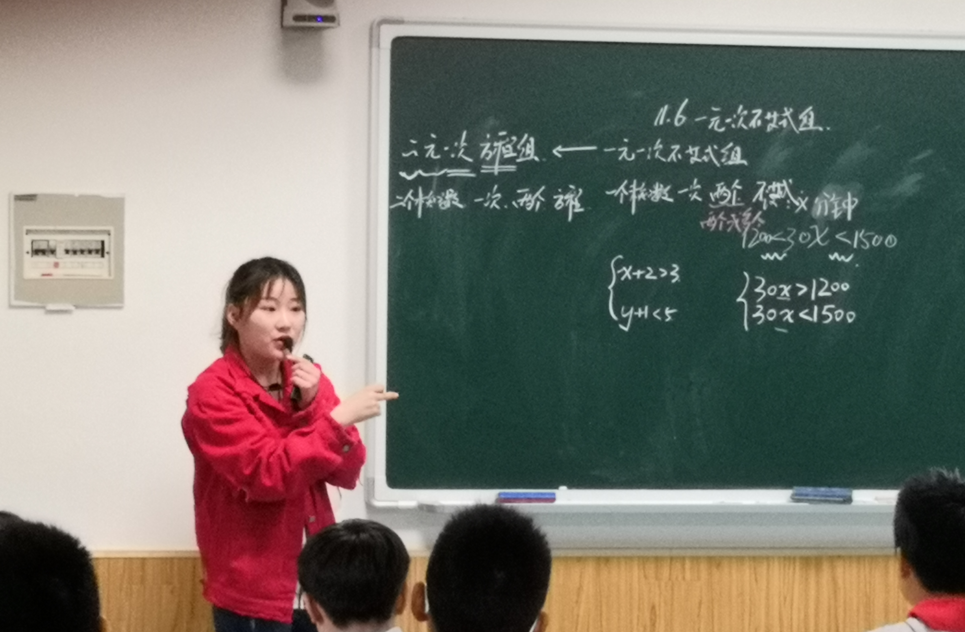 11.6 一元一次不等式组.
二元一次 方程组. ← 一元一次不等式组
二个未知数 一次. 两个 方程
一个未知数 一次 两个 不等式. x 分钟
1200<30x<1500
{x+2>3
y+1<5
{30x>1200
30x<1500